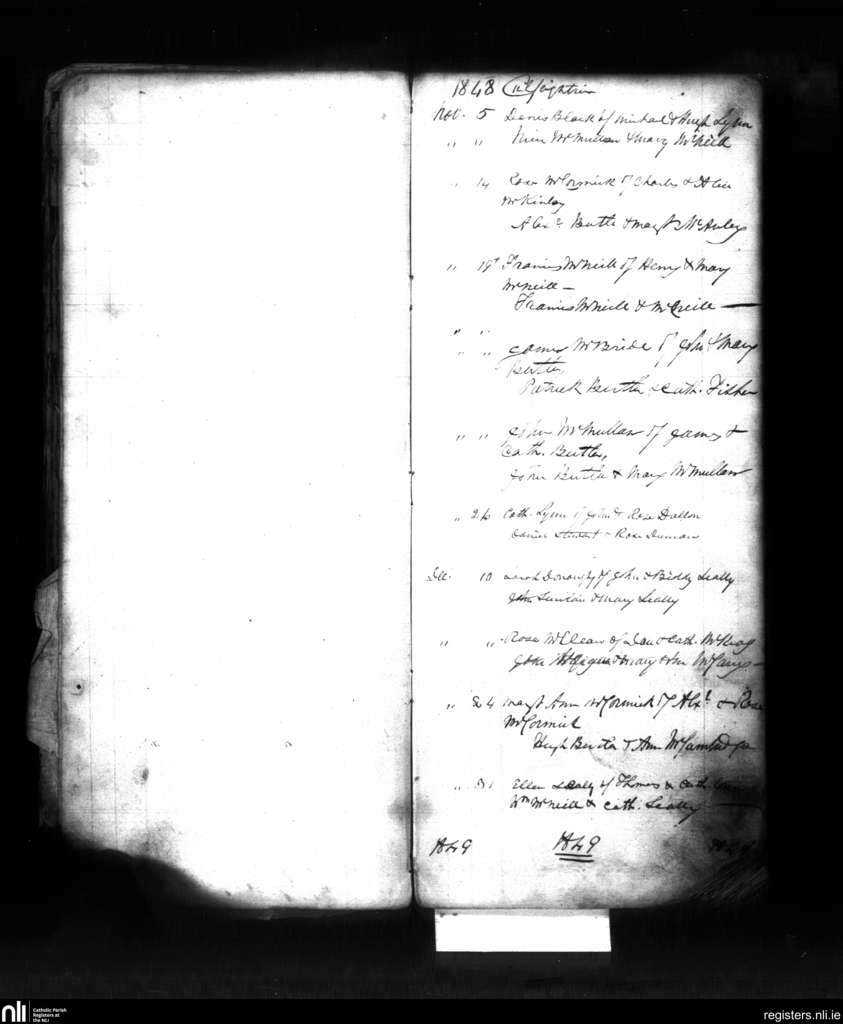 1848 Culfeightrin
Nov. 5 Denis Black of Michael & Lynn
" " McMullan & Mary McNeill
" 14 Rose McCormick of Charles & Alice
McKinley
Alexr Butler & Margt McAuley
" 19 Francis McNeill of Henry & Mary
McNeill —
Francis McNeill & McNeill —
" "
" " James McBride of John & Mary
Butler,
Patrick Butler & Cath. Fisher
" " John McMullan of James &
Cath. Butler,
John Butler & Mary McMullan
" 26 Cath. Lynn of John & Rose Dallon
Daniel Stewart & Rose Duncan
Dec. 10 Sarah of John & Biddy Scally
John & Mary Scally
" " Rose McClean of Dan & Cath.
John & Mary Ann
" 24 Margt Ann McCormick of Alxr & Rose
McCormick
Hugh Butler & Ann McCambridge
" 31 Ellen Scally of Thomas & Cath.
Wm McNeill & Cath. Scally —
1849 1849 1849
nli Catholic Parish
Registers at
the NLI
registers.nli.ie